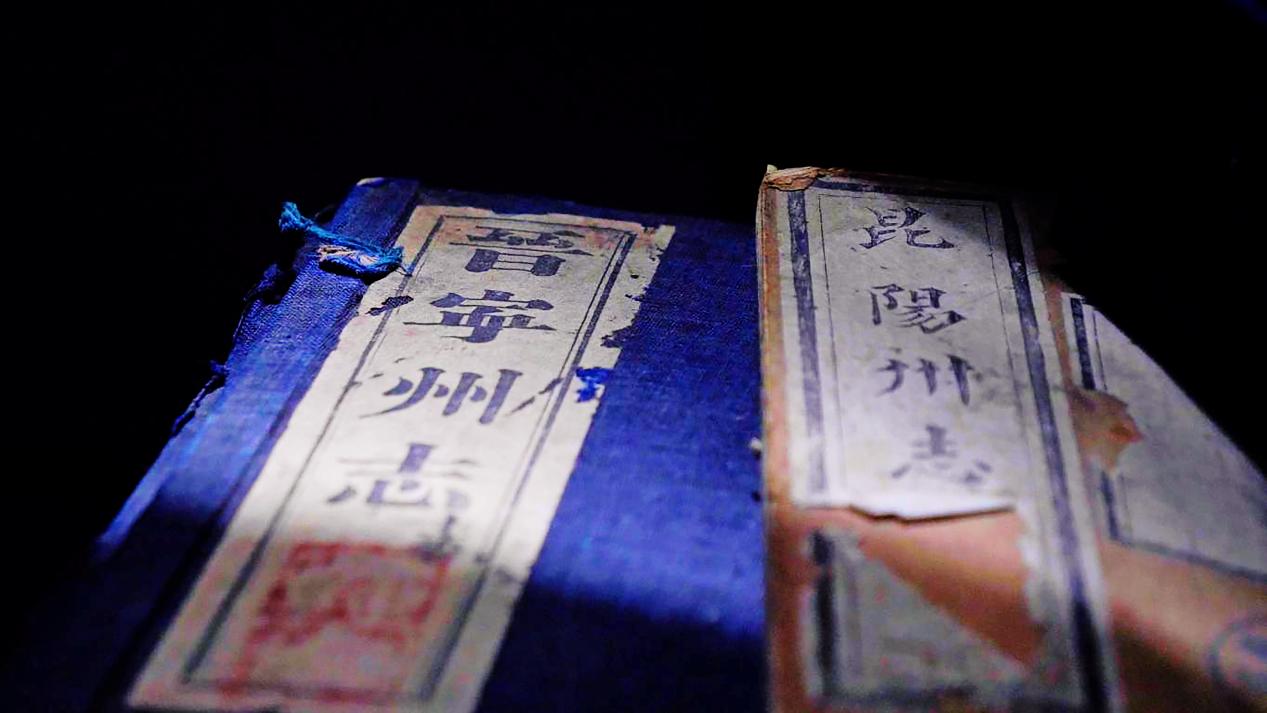 晉寧州志
昆陽州志